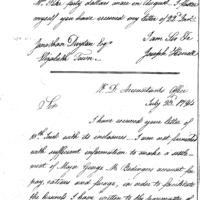 Mr. Stake, fifty dollars more in August. I flatter
myself you have received my letter of 22d Inst.
I am Sir &c
Jonathan Dayton Esqr
Elizabeth Town
Joseph Howell
W. D. Accountants Office
July 23d 1794
Sir
I have received your letter of
Inst. with its enclosures. I am not furnished
with sufficient information to make a settle-
ment of Major George M. Bedinger's account for
pay, rations and forage, in order to facilitate
the business I have written to the paymaster of